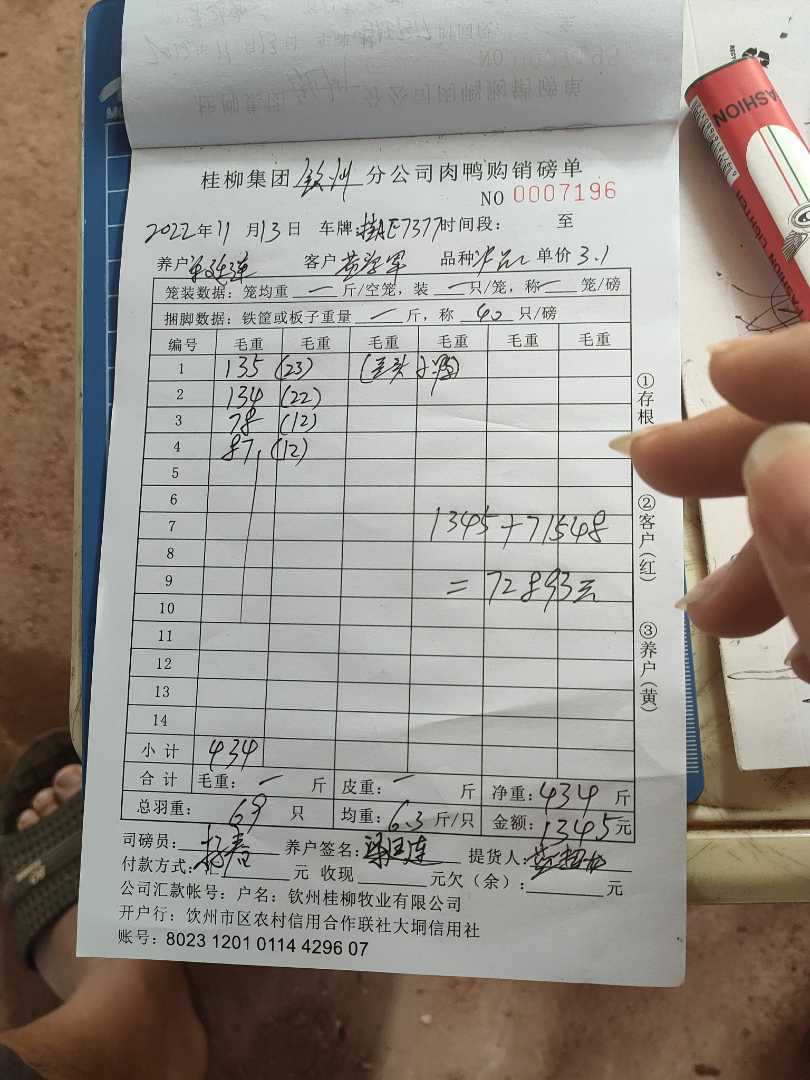 桂柳集团 钦州 分公司肉鸭购销磅单
NO 0007196
2022年11月13日 车牌 桂AE7377 时间段： 至
养户 客户 品种 单价 3.1
笼装数据：笼均重 一 斤/空笼，装 一 只/笼，称 一 笼/磅
捆脚数据：铁筐或板子重量 一 斤，称 40 只/磅
编号 毛重 毛重 毛重 毛重 毛重 毛重
1 135 (23)
2 134 (22)
3 78 (12)
4 87 (12)
5
6
7 1345+71548
8
9 =72893元
10
11
12
13
14
小计 434
合计 毛重：一 斤 皮重：一 斤 净重：434 斤
总羽重： 69 只 均重：6.3 斤/只 金额：1345元
司磅员： 养户签名： 提货人：
付款方式：汇 元 收现 元欠（余）： 元
公司汇款帐号：户名：钦州桂柳牧业有限公司
开户行：钦州市区农村信用合作联社大垌信用社
账号：8023 1201 0114 4296 07
①存根
②客户(红)
③养户(黄)
FASHION
FASHION LIGHTER